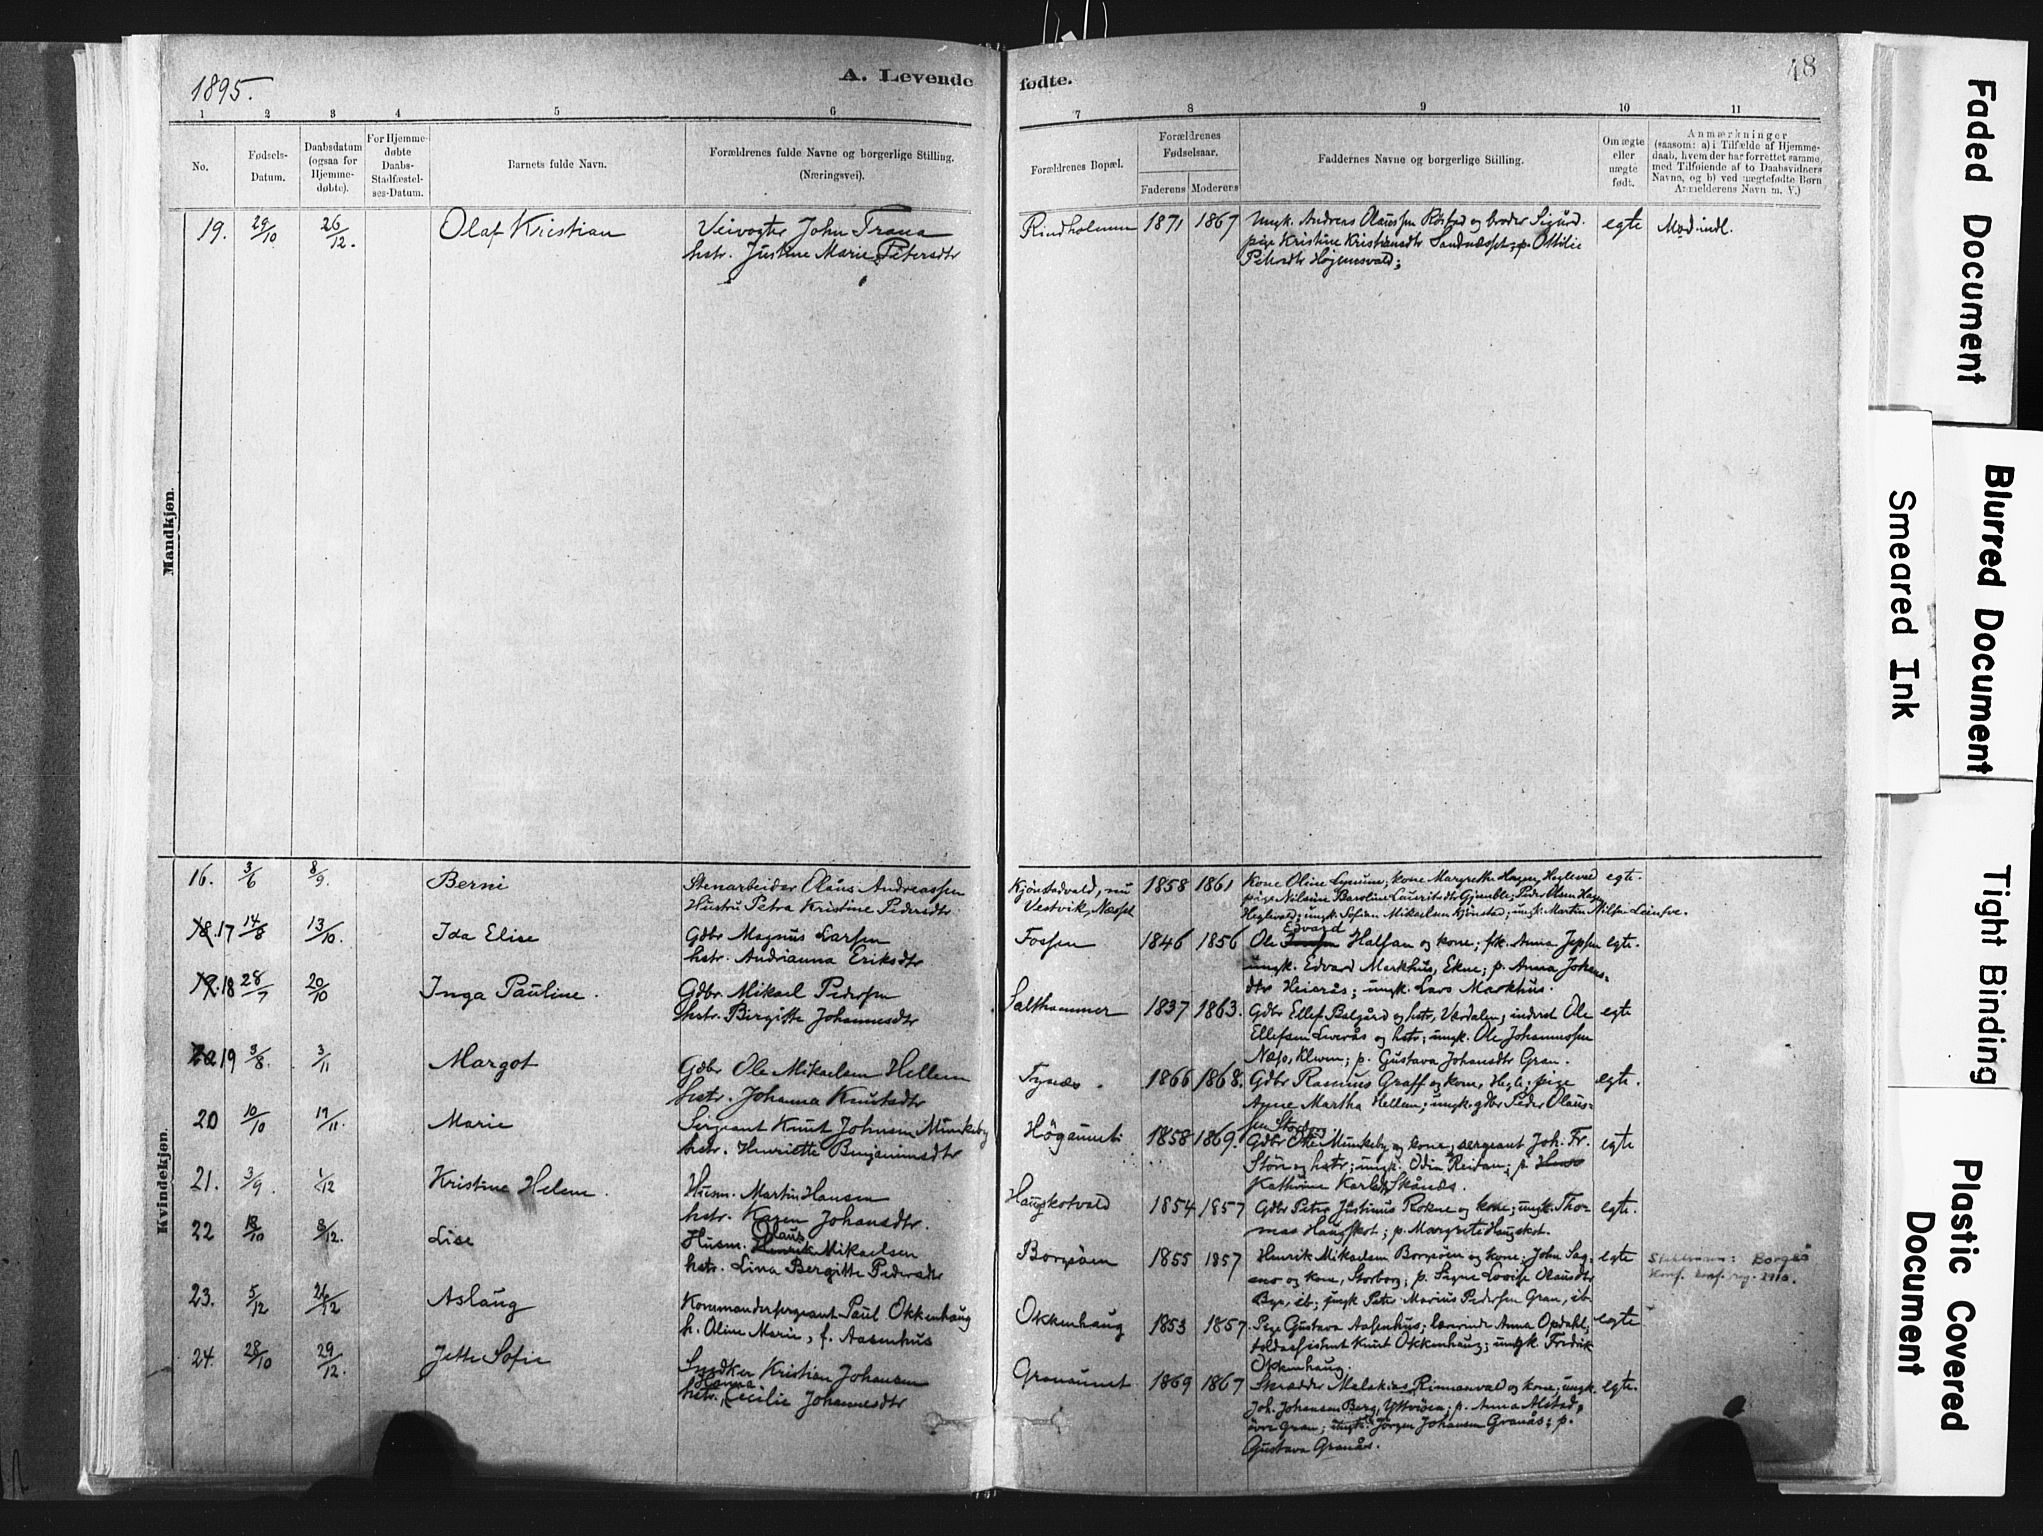 1895.
A. Levende
fødte.
48
1 2 3 4 5 6 7 8 9 10 11
No.
Fødsels-
Datum.
Daabsdatum
(ogsaa for
Hjemme-
døbte).
For Hjemme-
døbte
Daabs-
Stadfæstel-
ses-Datum.
Barnets fulde Navn.
Forældrenes fulde Navne og borgerlige Stilling.
(Næringsvei).
Forældrenes Bopæl.
Forældrenes
Fødselsaar.
Faderens Moderens
Faddernes Navne og borgerlige Stilling.
Om ægte
eller
uægte
født.
Anmærkninger
(saasom: a) i Tilfælde af Hjemme-
daab, hvem der har forrettet samme,
med Tilføiende af to Daabsvidners
Navne, og b) ved uægtefødte Børn
Anmelderens Navn m. V.)
Mandkjøn.
19. 29/10 26/12. Olaf Kristian
Veivogter John Trana
hstr. Justine Marie Petersdtr
Rindholmen 1871 1867
Ungk. Andreas Olaussen og broder Sigurd.
pige Kristine Kristiansdtr Sandnesset; p. Ottilie
egte Mod. indl.
Kvindekjøn.
16. 3/6 8/9. Berni
Stenarbeider Olaus Andreassen
Hustru Petra Kristine Pedersdtr
Kjönstadvald, nu
Vestvik, Nesset
1858 1861
Kone Oline Lynum; kone Margrethe Hagen, Heglevald
pige Nilsine Baroline Lauritsdtr Gjemble; Peder Olsen
Heglevald; ungk. Sefian Mikaelsen Kjönstad; ungk. Martin Nilsen
egte.
18. 17 14/8 13/10. Ida Elise
Gdbr Magnus Larsen
hstr. Andrianna Eriksdtr
Fossen 1846 1856
Edvard
Ole Halsan og kone; frk. Anna Jepsen
ungk. Edvard Markhus, Ekne; p. Anna Johans-
dtr Heierås; ungk. Lars Markhus.
egte.
19. 18 28/7 20/10 Inga Pauline.
Gdbr. Mikael Pedersen
hstr. Birgitte Johannesdtr
Salthammer 1837 1863.
Gdbr Ellef Balgård og hstr, Værdalen; inderst Ole
Ellefsen Leverås og hstr; ungk. Ole Johannessen
Næss, Klven; p. Gustava Johansdtr Gran.
egte
20 19 3/8. 3/11 Margot
Gdbr Ole Mikaelsen Hellem
hstr. Johanna Knutsdtr
Tynes. 1866 1868.
Gdbr Rasmus Graff og kone, Hegle; pige
Anne Martha Hellem; ungk. gdbr Peder Olaus-
sen
egte.
20 10/10 17/11. Marie
Sergeant Knut Johnsen Munkeby
hstr. Henriette Benjaminsdtr
Högaunet 1858 1869.
Gdbr Ole Munkeby og kone; sergeant Joh. Fr.
Störe og hstr; ungk. Odin Reitan; p.
Kathrine Karlsdtr Skånes.
egte
21. 3/9. 1/12 Kristine Helene.
Husm. Martin Hansen
hstr. Karen Johansdtr.
Haugskotvald 1854 1857
Gdbr Peter Justinus Rokne og kone; ungk. Thor-
mas Haugskot; p. Margrete Haugskot.
egte.
22 18/10 8/12. Lise
Olaus
Husm. Henrik Mikaelsen
hstr. Lina Bergitte Pedersdtr
Borgsöen 1855 1857
Henrik Mikaelsen Borgsöen og kone; John Sag-
mo og kone, Storborg; p. Signe Lovise Olausdtr
Bye, ib; ungk Peter Marius Pedersen Gran, ib
egte
23. 5/12 26/12 Aslaug
Kommandersergeant Paul Okkenhaug
h. Oline Marie, f. Aasenhus
Okkenhaug 1853 1857.
Pige Gustava Aasenhus; lærerinde Anna Opdahl;
toldassistent Knut Okkenhaug; ungk. Fredrik
Okkenhaug.
egte
24. 28/10 29/12. Jette Sofie
Snedker Kristian Johansen
Hanna
hstr. Cecilie Johannesdtr
Granaunet 1869 1867
Skrædder Malakias Rinnanvald og kone; ungk.
Joh. Johansen Berg, Ytterøen; p. Anna Alstad,
övre Gran; ungk. Jörgen Johansen Granås; p.
Gustava Granås.
egte.
Faded Document
Blurred Document
Smeared Ink
Tight Binding
Plastic Covered
Document